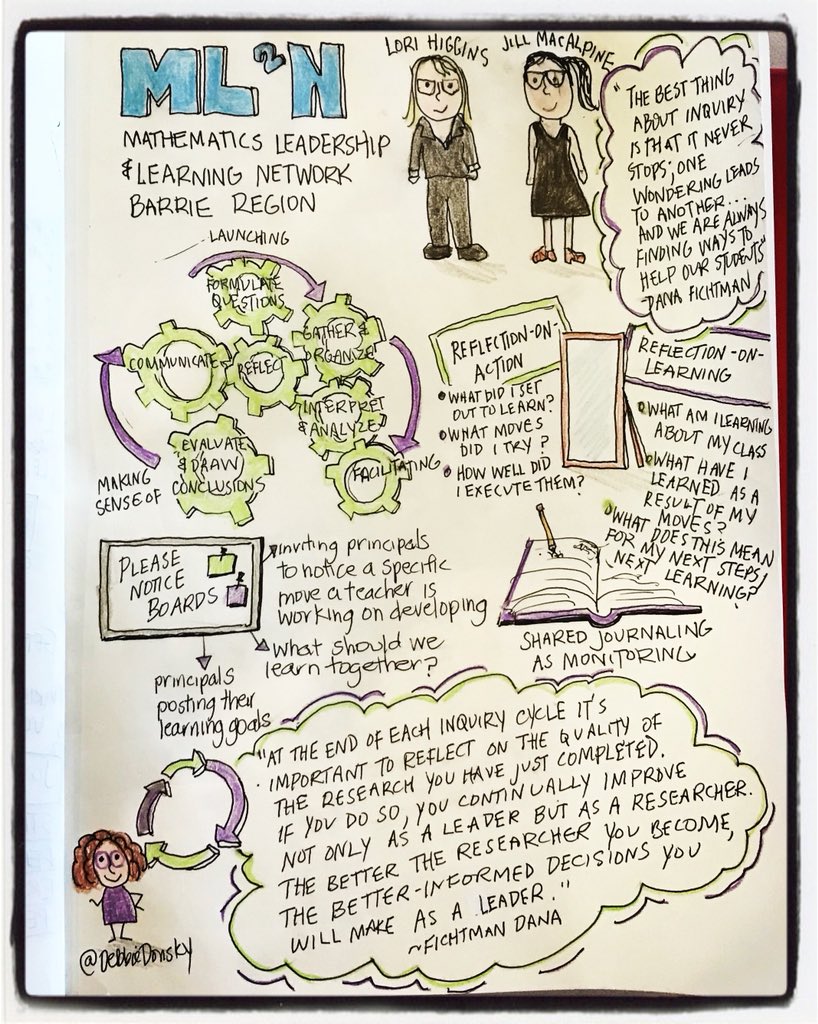 ML²N
MATHEMATICS LEADERSHIP
& LEARNING NETWORK
BARRIE REGION
LORI HIGGINS
JILL MACALPINE
"THE BEST THING
ABOUT INQUIRY
IS THAT IT NEVER
STOPS; ONE
WONDERING LEADS
TO ANOTHER...
AND WE ARE ALWAYS
FINDING WAYS TO
HELP OUR STUDENTS"
DANA FICHTMAN
LAUNCHING
FORMULATE
QUESTIONS
GATHER &
ORGANIZE
COMMUNICATE
REFLECT
INTERPRET
& ANALYZE
EVALUATE
& DRAW
CONCLUSIONS
FACILITATING
MAKING
SENSE OF
REFLECTION-ON-
ACTION
• WHAT DID I SET
OUT TO LEARN?
• WHAT MOVES
DID I TRY?
• HOW WELL DID
I EXECUTE THEM?
REFLECTION-ON-
LEARNING
• WHAT AM I LEARNING
ABOUT MY CLASS
• WHAT HAVE I
LEARNED AS A
RESULT OF MY
MOVES?
• WHAT DOES THIS MEAN
FOR MY NEXT STEPS/
NEXT LEARNING?
PLEASE
NOTICE
BOARDS
inviting principals
to notice a specific
move a teacher is
working on developing
what should we
learn together?
principals
posting their
learning goals
SHARED JOURNALING
AS MONITORING
"AT THE END OF EACH INQUIRY CYCLE IT'S
IMPORTANT TO REFLECT ON THE QUALITY OF
THE RESEARCH YOU HAVE JUST COMPLETED.
IF YOU DO SO, YOU CONTINUALLY IMPROVE
NOT ONLY AS A LEADER BUT AS A RESEARCHER.
THE BETTER THE RESEARCHER YOU BECOME,
THE BETTER-INFORMED DECISIONS YOU
WILL MAKE AS A LEADER."
~FICHTMAN DANA
@DebbieDonsky